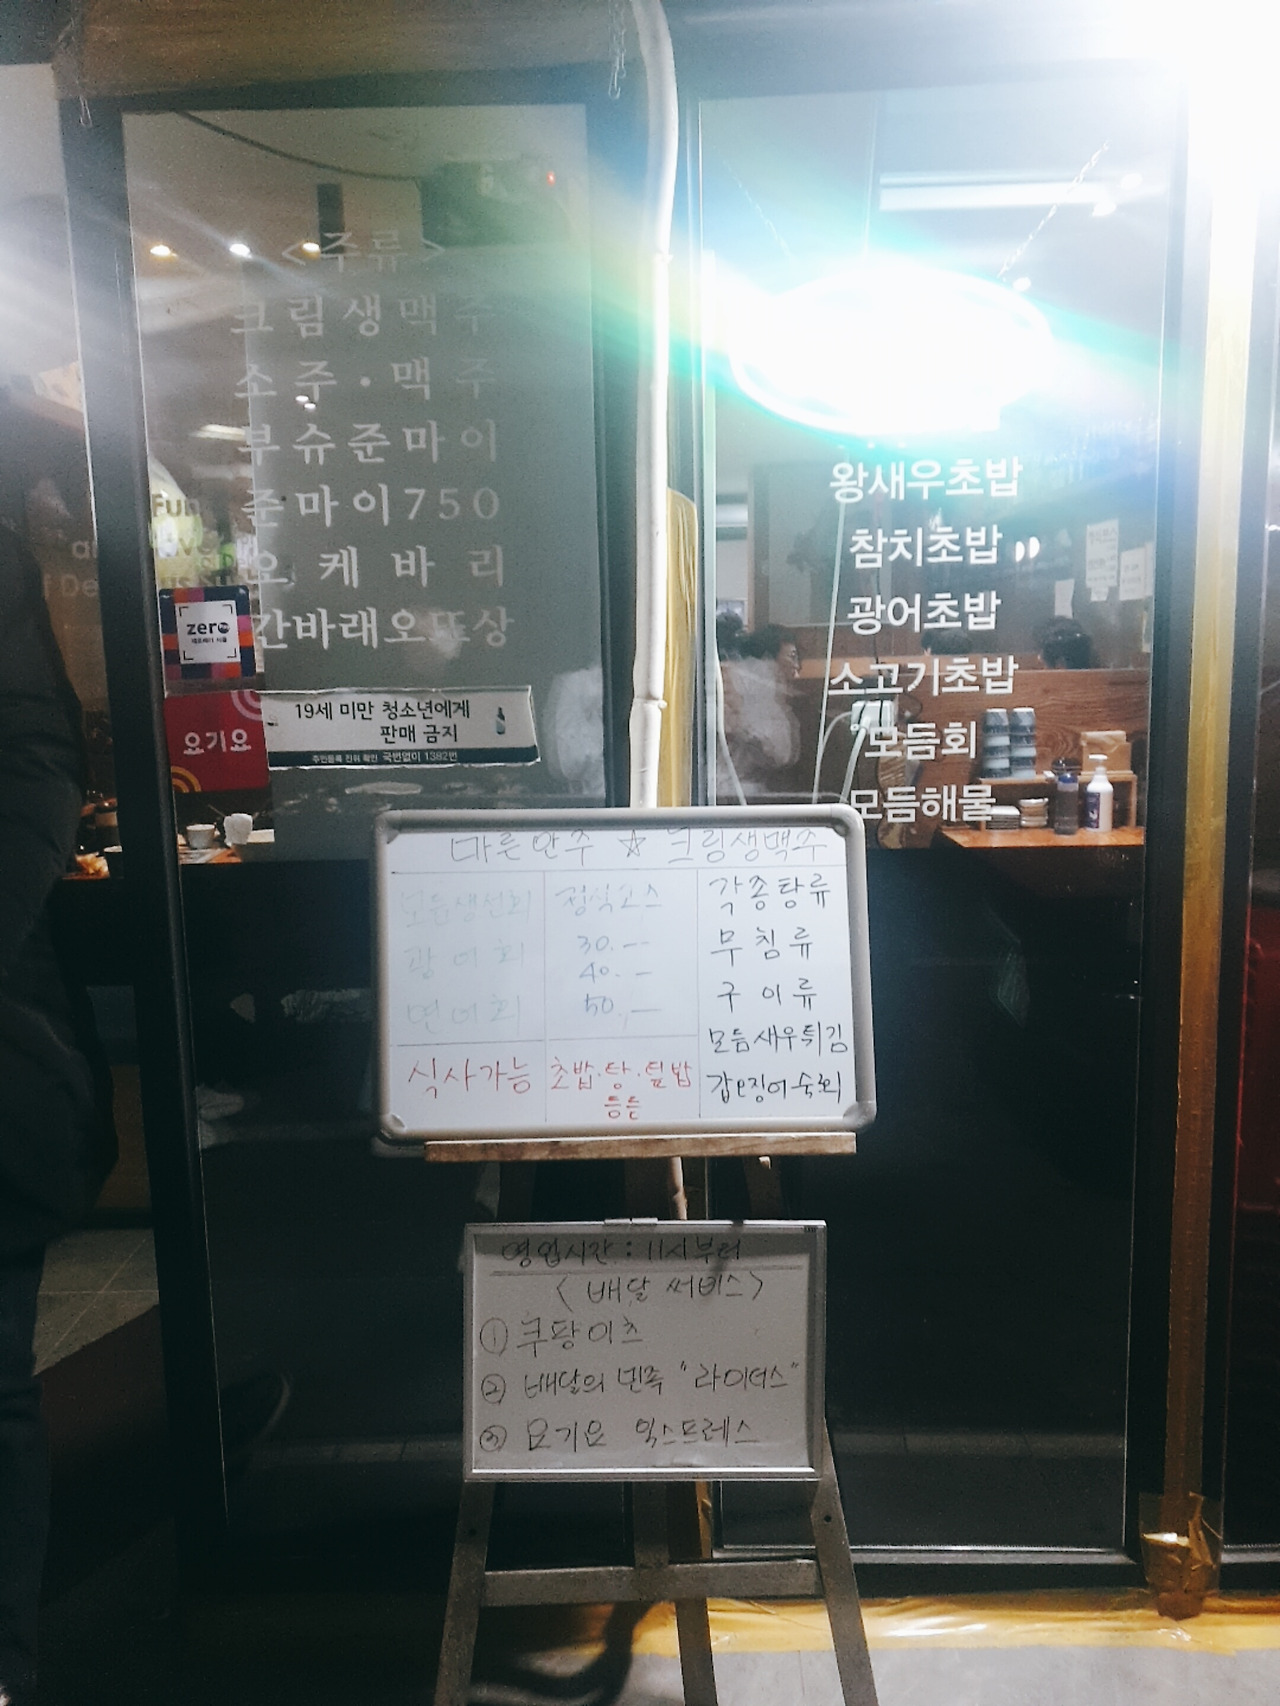 <주류>
크림생맥주
소주·맥주
부슈준마이
준마이750
오케바리
간바래오또상
Fun
zero
제로페이 서울
요기요
19세 미만 청소년에게
판매 금지
주민등록 진위 확인 국번없이 1382번
왕새우초밥
참치초밥
광어초밥
소고기초밥
모듬회
모듬해물
마른안주 ☆ 크림생맥주
모듬생선회
광어회
연어회
정식코스
30.--
40.-
50.-
각종탕류
무침류
구이류
모듬새우튀김
갑오징어숙회
식사가능
초밥·탕·덮밥
등등
영업시간 : 11시부터
<배달 써비스>
① 쿠팡이츠
② 배달의 민족 "라이더스"
③ 요기요 익스프레스